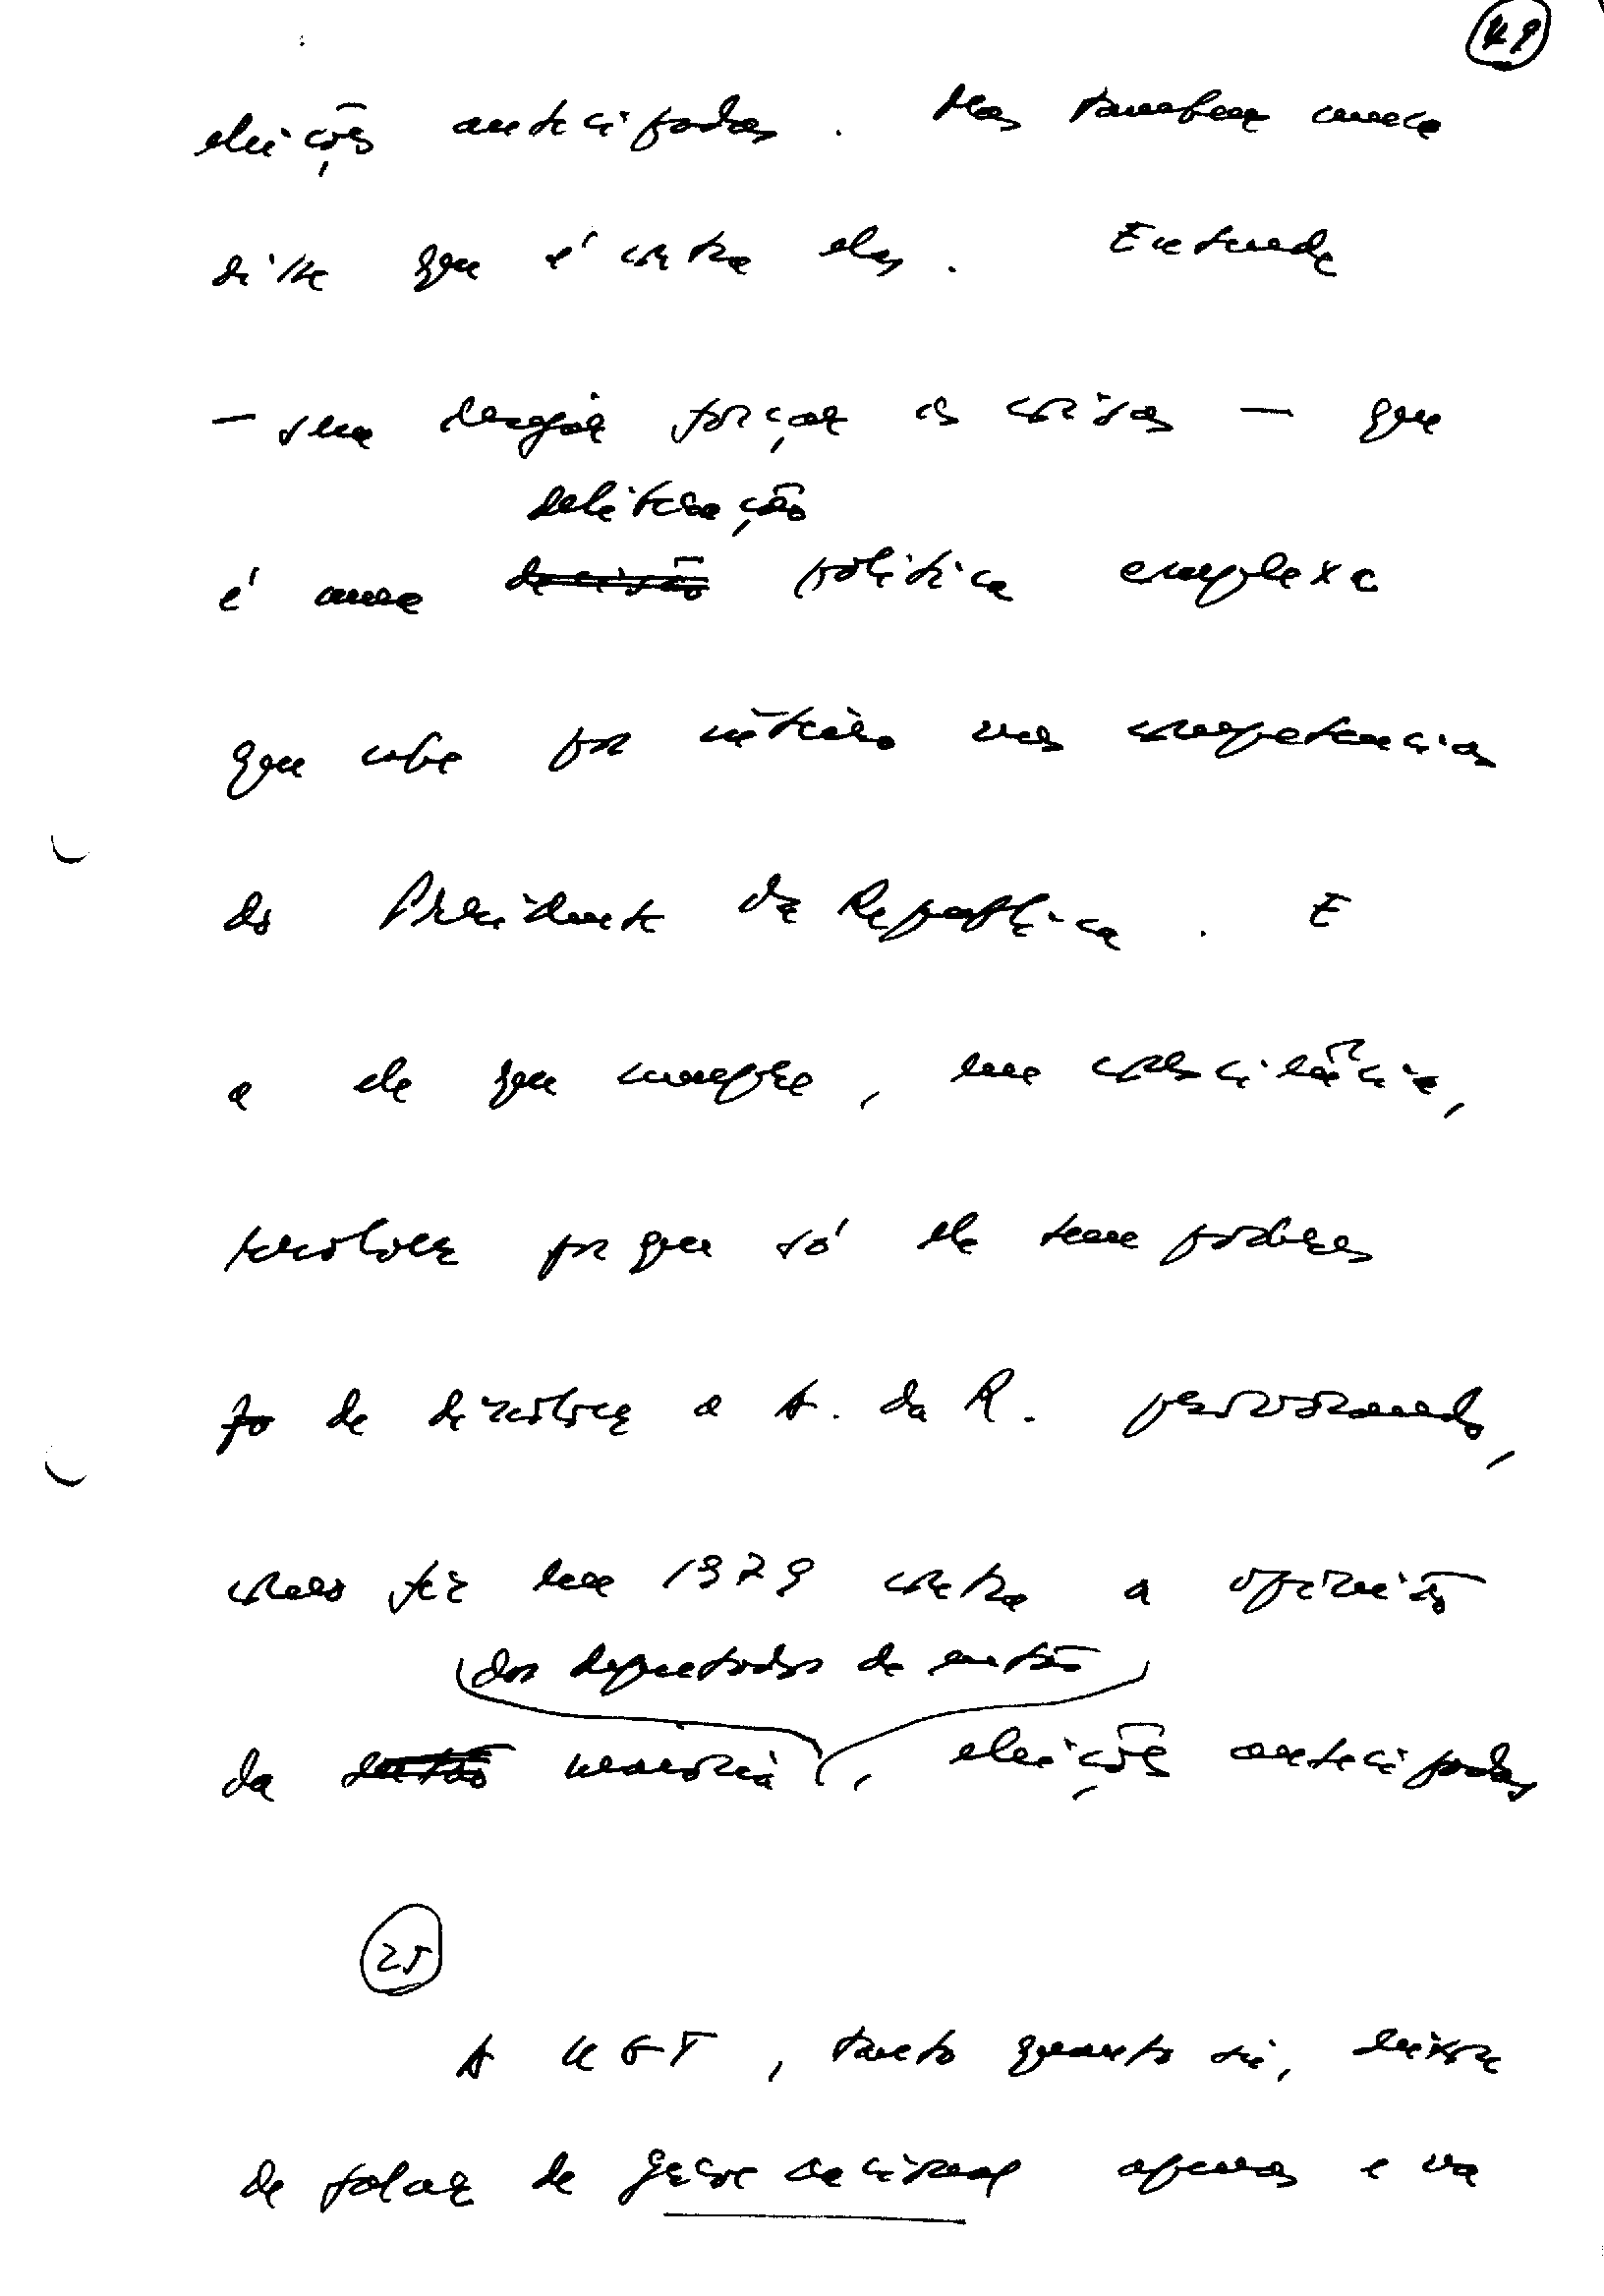 49
eleições antecipadas. Mas também nunca
disse que é contra elas. Entende
— sem desejar forçar as coisas — que
deliberação
é uma decisão política complexa
que cabe por inteiro nas competencias
do Presidente da República. E
a ele que cumpre, em consciência,
resolver porque só ele tem poderes
de dissolver a A. da R. provocando,
como fez em 1979 contra a opinião
dos deputados de então
da maioria, eleições antecipadas
25
A UGT, tanto quanto sei, deixou
de falar de greve nacional apenas e na